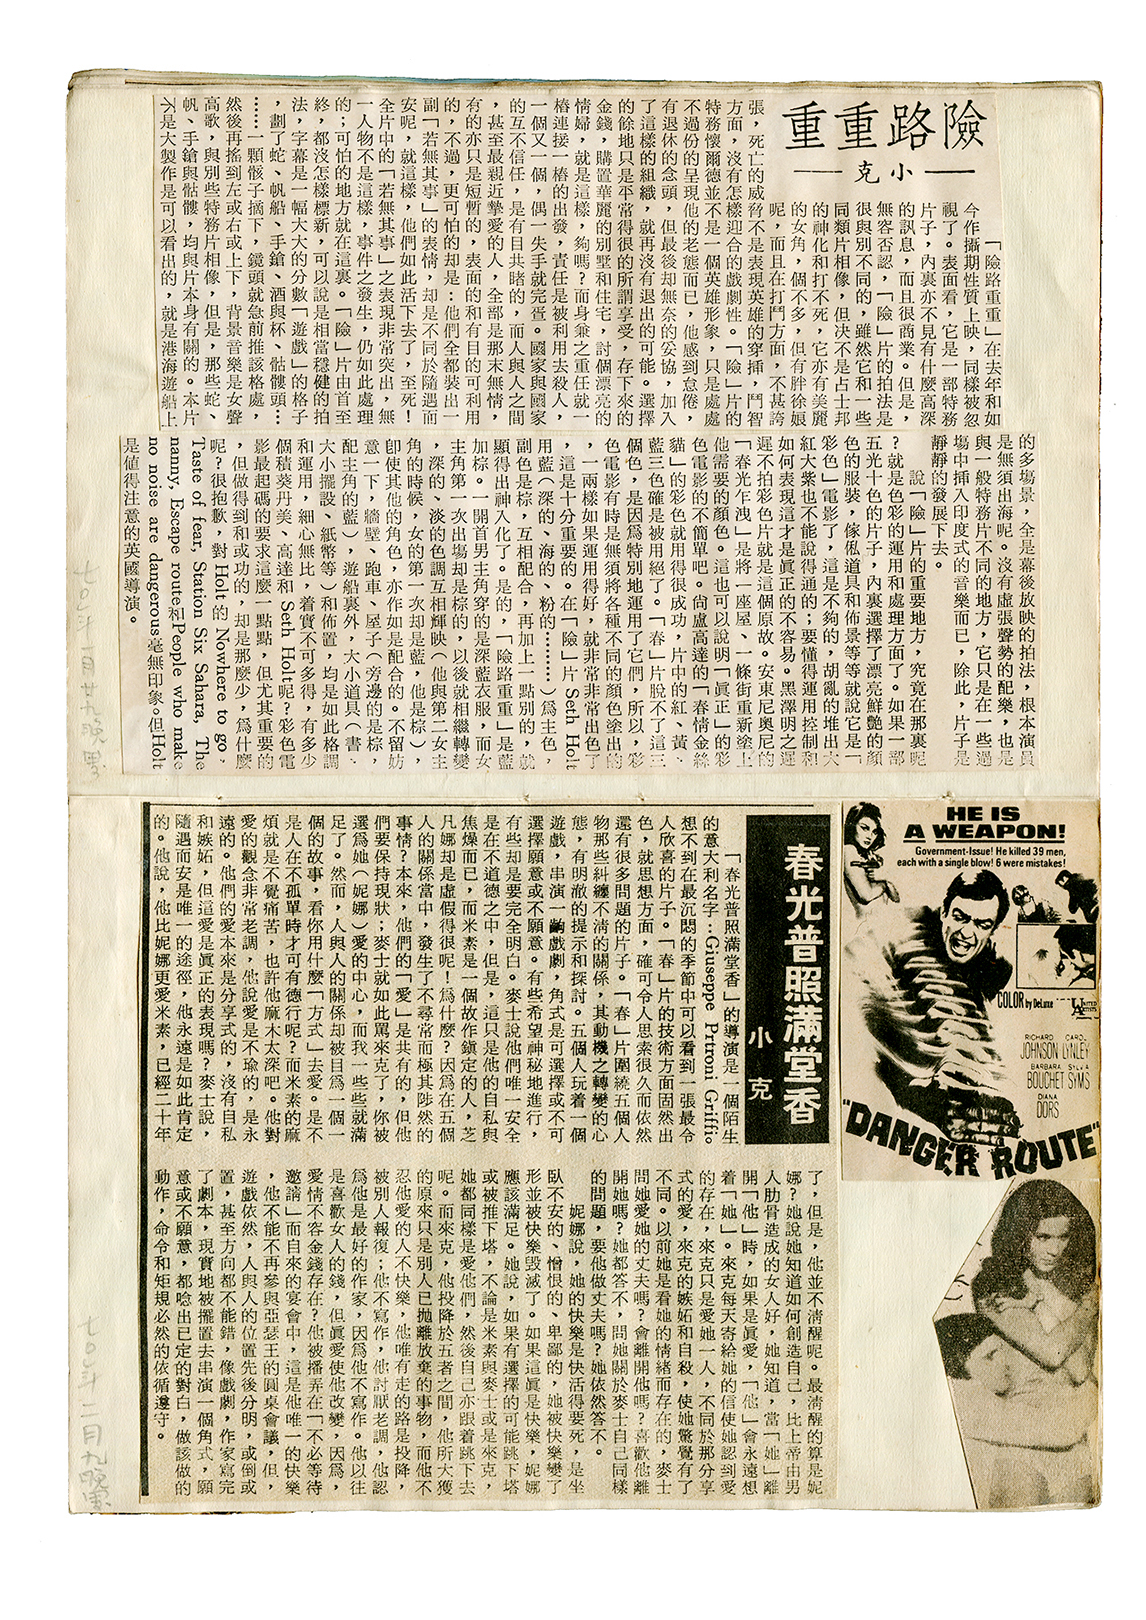 險路重重
——小克——
「險路重重」在去年和如
今作攝期性質上映，同樣被忽
視了。表面看，它是一部特務
片子，內裏亦不見有什麼高深
的訊息，而且很商業。但是，
無容否認，「險」片的拍法是
很與別不同的，雖然它和一些
同類片相像，但决不是占士邦
的神化和打不死，它亦有美麗
的女角，個不多，但有胖徐娘
呢，而且在打鬥方面，不甚誇
張，死亡的威脅不是表現英雄的穿揷，鬥智
方面，沒有怎樣迎合的戲劇性。「險」片的
特務懷爾德並不是一個英雄形象，只是處處
不過份的呈現他的老態而已，他感到怠倦，
有退休的念頭，但最後却無奈的妥協，加入
了這樣的組織，就再沒有退出的可能。選擇
的餘地只是平常得很的所謂享受，存下來的
金錢，購置華麗的別墅和住宅，討個漂亮的
情婦，就是這樣，夠嗎？而身兼之重任就一
樁連接一樁的出發，責任是被利用去殺人，
一個又一個，偶一失手就完蛋。國家與國家
的互不信任，是有目共睹的，而人與人之間
，甚至最親近摯愛的人，全部是那末無情，
有的亦只是短暫的，表面的和有目的可利用
的，不過，更可怕的却是：他們全都裝出一
副「若無其事」的表情，却是不同於隨遇而
安呢，就這樣，他們如此活下去了，至死！
全片中的「若無其事」之表現非常突出，無
一人物不是這樣，事件之發生，仍如此處理
的；可怕的地方就在這裏。「險」片由首至
終，都沒怎樣標新，可以說是相當穩健的拍
法，字幕是一幅大大的分數「遊戲」的格子
，劃了蛇、帆船、手鎗、酒與杯、骷髏頭…
……一顆骰子摘下，鏡頭就急前推該格處，
然後再搖到左或右或上下，背景音樂是女聲
高歌，與別些特務片相像，但是，那些蛇、
帆、手鎗與骷髏，均與片本身有關的。本片
不是大製作是可以看出的，就是港海遊船上
的多塲景，全是幕後放映的拍法，根本演員
是無須出海呢。沒有虛張聲勢的配樂，也是
與一般特務片不同的地方，它只是在一些過
塲中揷入印度式的音樂而已，除此，片子是
靜靜的發展下去。
說「險」片的重要地方，究竟在那裏呢
？就是色彩的運用和處理方面了。如果一部
五光十色的片子，內裏選擇了漂亮鮮艷的顏
色的服裝，傢俬道具和佈景等等就說它是「
彩色」電影了，這是不夠的，胡亂的堆出大
紅大紫也不能說得通的；要懂得運用控制和
如何表現這才是眞正的不容易。黑澤明之遲
遲不拍彩色片就是這個原故。安東尼奧尼的
「春光乍洩」是將一座屋、一條街重新塗上
他需要的顏色。這也可以說明「眞正」的彩
色電影的不簡單吧。尙盧高達的「春情金絲
貓」的彩色就用得很成功，片中的紅、黃、
藍三色確是被用絕了。「春」片脫不了這三
個色，是因爲特別地運用了它們，所以，彩
色電影有時是無須將各種不同的顏色塗出的
，一兩樣如果運用得好，就非常非常出色了
，這是十分重要的。在「險」片 Seth Holt
用藍（深的、海的、粉的………）爲主色，
副色是棕，互相配合，再加上一點別的，就
顯得出神入化了。是的，「險路重重」是藍
加棕。一開首男主角穿的是深藍衣服，而女
主角第一次出塲却是棕的，以後就相繼轉變
，深的、淡的色調互相輝映（他與第二女主
角的時候，女的第一次却是藍，他是棕）。
卽使其他的角色，亦作如是配合的。不留妨
意一下，牆壁、跑車、屋子（旁邊的是棕，
配主角的藍），遊船裏外，大小道具（書、
大小擺設、紙幣等）和佈置，均是如此格調
和運用，細心無比，着實不可多得，有多少
個積葵丹美、高達和 Seth Holt呢？彩色電
影最起碼的要求這麼一點點，但尤其重要的
，但做得到和成功的，却是那麼少，爲什麼
呢？很抱歉，對 Holt 的 Nowhere to go、
Taste of fear, Station Six Sahara, The
nanny, Escape route和People who make
no noise are dangerous毫無印象。但Holt
是値得注意的英國導演。
七〇年一月廿九晚
HE IS
A WEAPON!
Government-Issue! He killed 39 men,
each with a single blow! 6 were mistakes!
COLOR by DeLuxe
UNITED
ARTISTS
RICHARD JOHNSON
CAROL LYNLEY
BARBARA BOUCHET
SYLVIA SYMS
DIANA
DORS
"DANGER ROUTE"
春光普照滿堂香
小克
「春光普照滿堂香」的導演是一個陌生
的意大利名字：Giuseppe Prtroni Griffio
想不到在最沉悶的季節中可以看到一張最令
人欣喜的片子。「春」片的技術方面固然出
色，就思想方面，確可令人思索很久而依然
還有很多問題的片子。「春」片圍繞五個人
物那些糾纏不淸的關係，其動機之轉變的心
態，有明澈的提示和探討。五個人玩着一個
遊戲，串演一齣戲劇，角式是可選擇或不可
選擇願意或不願意。有些希望神秘地進行，
有些却是要完全明白。麥士說他們唯一安全
是在不道德之中，但是，這只是他的自私與
焦燥而已，而米素是一個故作鎮定的人，芝
凡娜却是虛假得很呢！爲什麼？因爲在五個
人的關係當中，發生了不尋常而極其陟然的
事情？本來，他們的「愛」是共有的，但他
們要保持現狀；麥士就如此罵來克了，你被
選爲她（妮娜）愛的中心，而我一些些就滿
足了。然而，人與人的關係却被目爲一個一
個的故事，看你用什麼「方式」去愛。是不
是人在不孤單時才可有德行呢？而米素的麻
煩就是不覺痛苦，也許他麻木太深吧。他對
愛的觀念非常老調，他說愛是不瑜的，是永
遠的。他們的愛本來是分享式的，沒有自私
和嫉妬，但這愛是眞正的表現嗎？麥士說，
隨遇而安是唯一的途徑，他永遠是如此肯定
的。他說，他比妮娜更愛米素，已經二十年
了，但是，他並不淸醒呢。最淸醒的算是妮
娜？她說她知道如何創造自己，比上帝由男
人肋骨造成的女人好，她知道，當「她」離
開「他」時，如果是眞愛，「他」會永遠想
着「她」。來克每天寄給她的信使她認到愛
的存在，來克只是愛她一人，不同於那分享
式的愛，來克的嫉妬和自殺，使她驚覺有了
不同。以前她是看她的情緒而存在的，麥士
問她愛她的丈夫嗎？會離開他嗎？喜歡他離
開她嗎？她都答不，問她關於麥士自己同樣
的問題，要他做丈夫嗎？她依然答不。
妮娜說，她的快樂是快活得要死，是坐
臥不安的、憎恨的、卑鄙的，她被快樂變了
形並被快樂毁滅了。如果這眞是快樂，妮娜
應該滿足。她說，如果有選擇的可能跳下塔
或被推下塔，不論是米素與麥士或是來克，
她都同樣是愛他們，然後自己亦跟着跳下去
呢。而來克，他投降於五者之間，他所大獲
的原來只是別人已抛離放棄的事物，而他不
忍他愛的人不快樂，他唯有走的路是投降，
被別人報復；他不寫作，他討厭老調，他認
爲他是最好的作家，因爲他不寫作。他以往
是喜歡女人的錢，但眞愛使他改變，因爲，
愛情不容金錢存在？他被播弄在「不必等待
邀請」而自來的宴會中，這是他唯一的快樂
，他不能不再參與亞瑟王的圓桌會議，但，
遊戲依然，人與人的位置先後分明，或倒或
置，甚至方向都不能錯，像戲劇，作家寫完
了劇本，現實地被擺置去串演一個角式，願
意或不願意，都唸出已定的對白，做該做的
動作，命令和矩規必然的依循遵守。
七〇年二月九晚